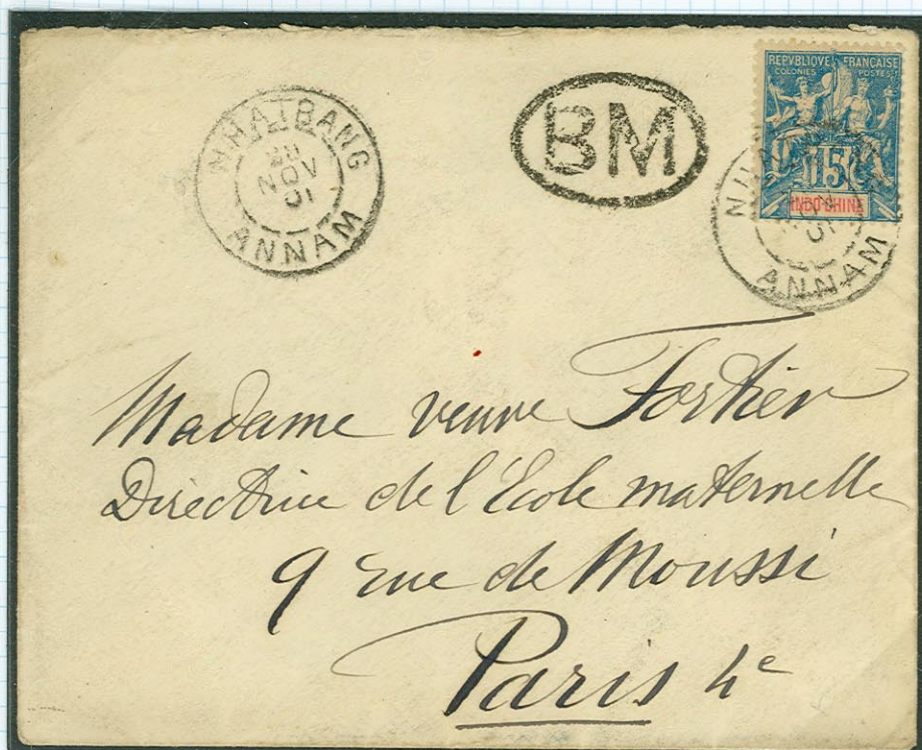 NHATBANG
28
NOV
01
ANNAM
BM
REPVBLIQVE FRANÇAISE
COLONIES POSTES
15
INDO-CHINE
ANNAM
Madame veuve Fortier
Directrice de l'Ecole maternelle
9 rue de Moussi
Paris 4e